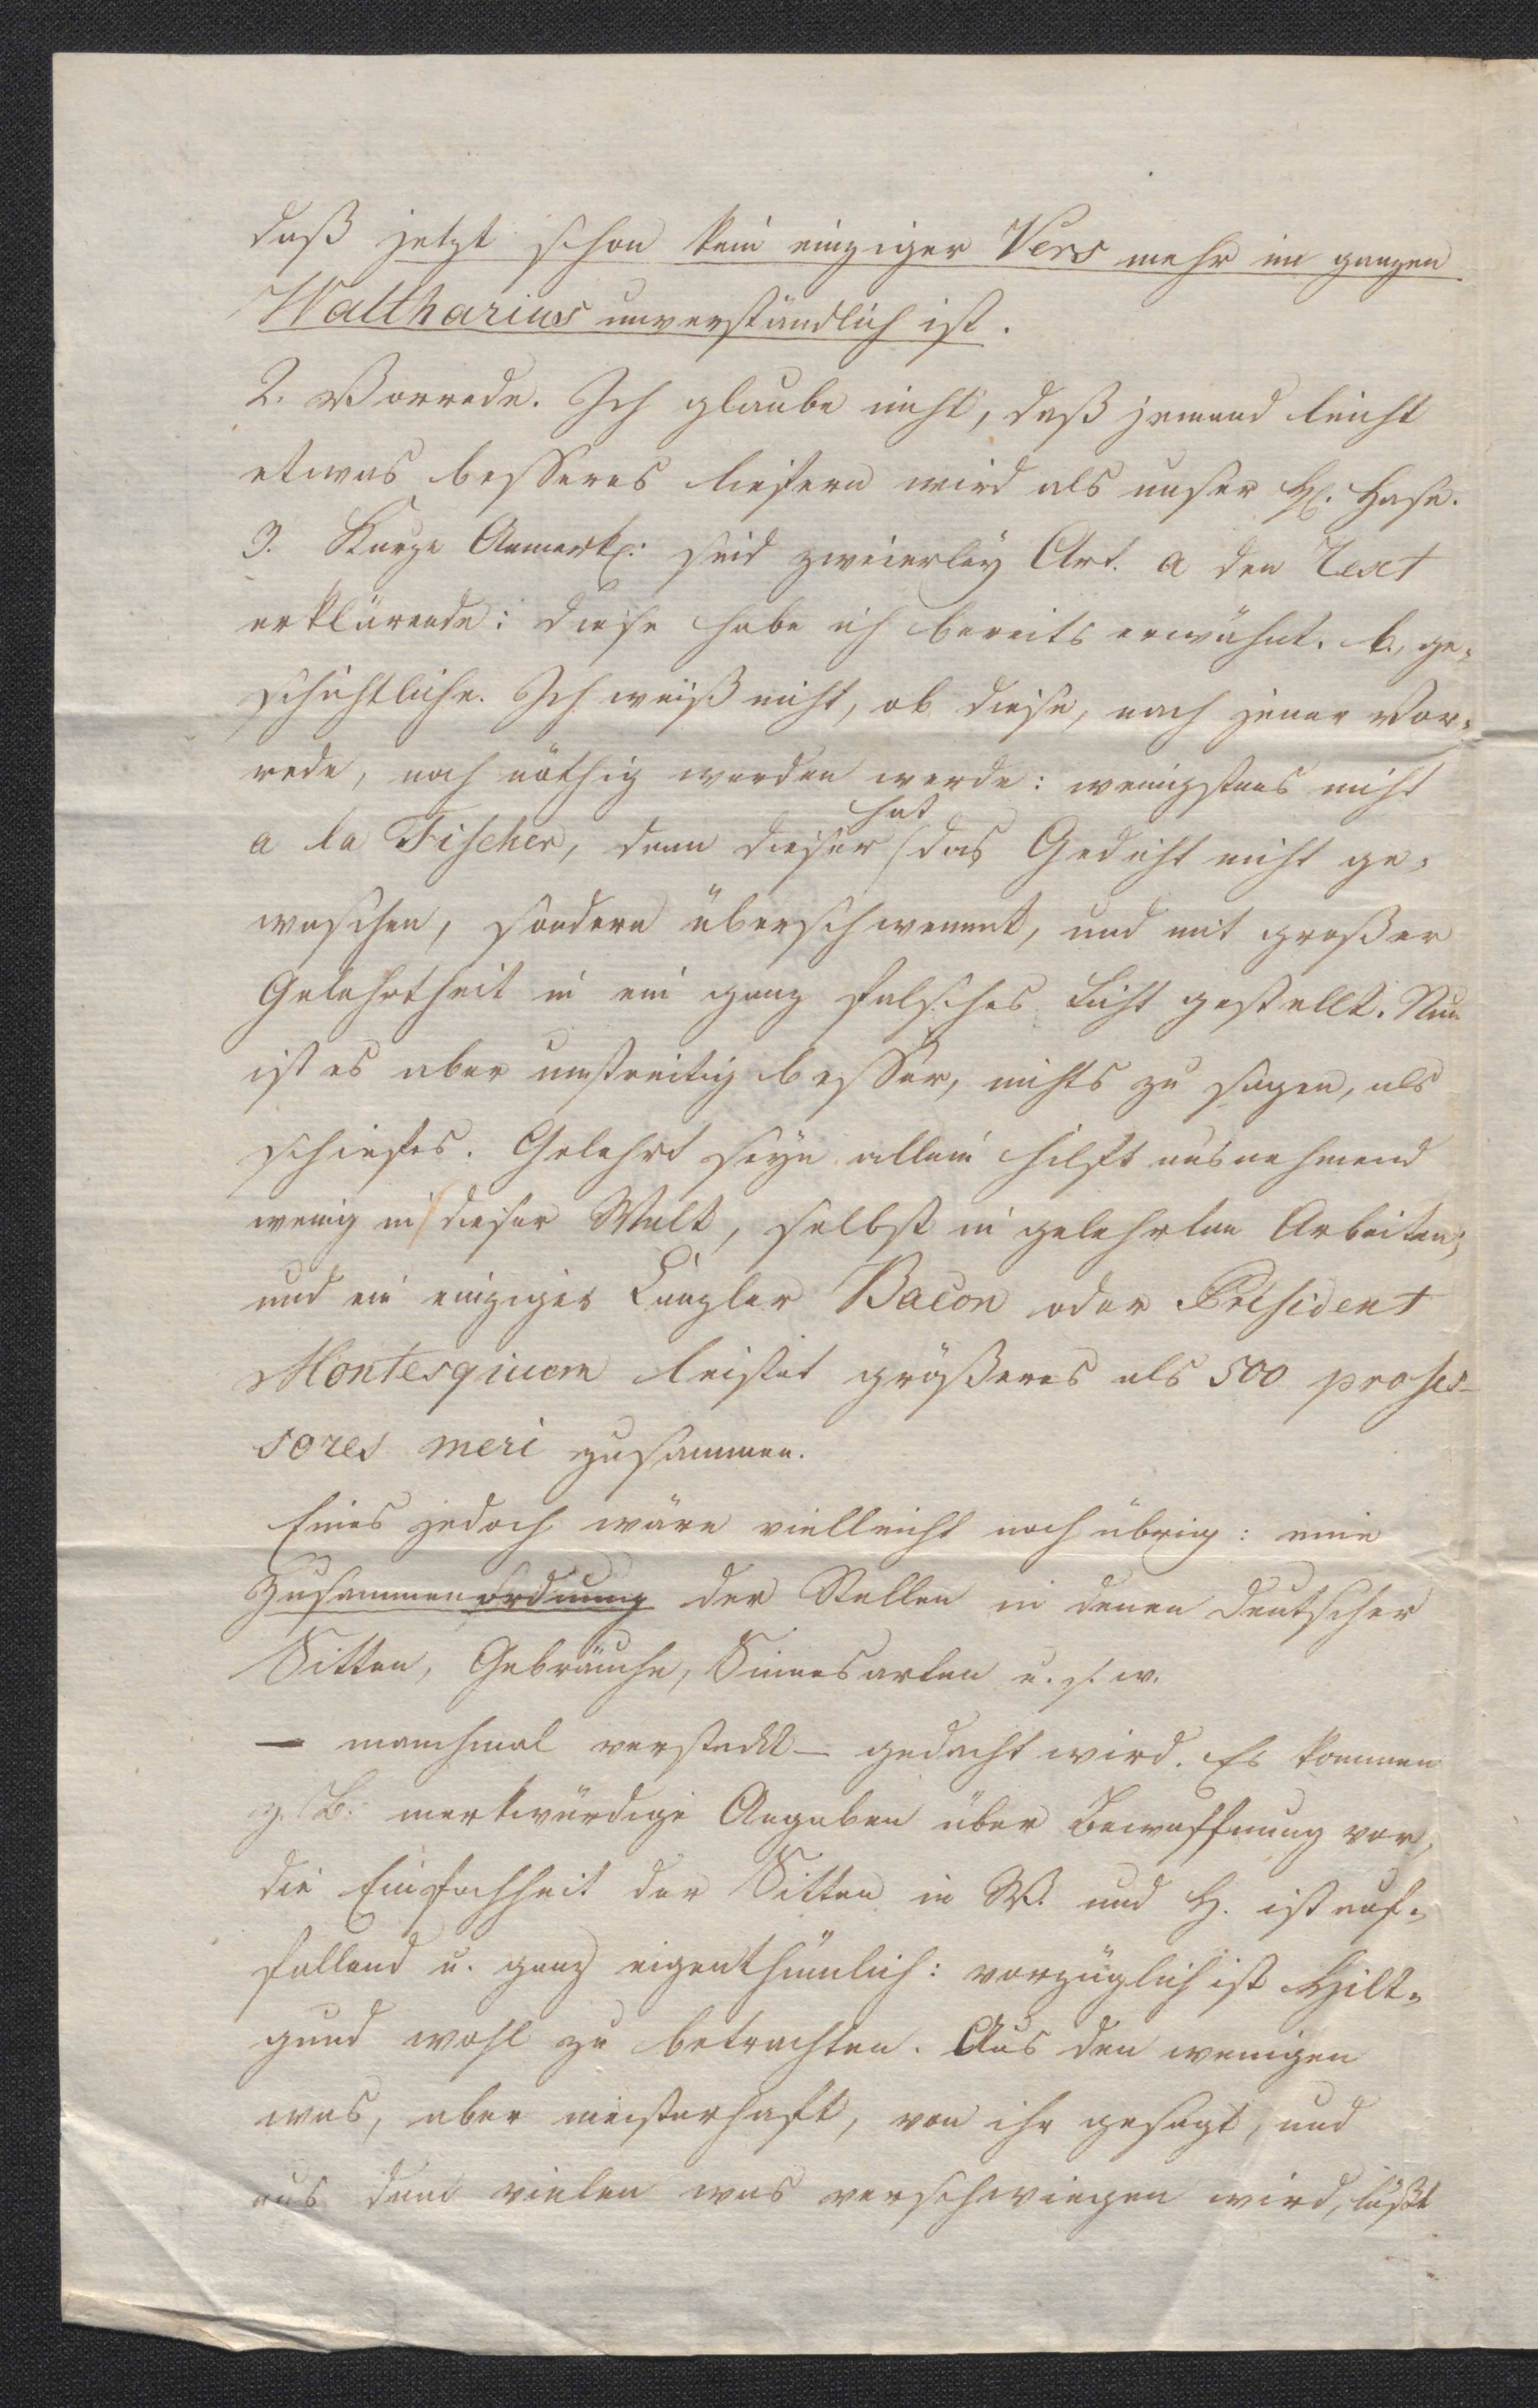 daß jetzt schon kein einziger Vers mehr im ganzen
Waltharius unverständlich ist.
2. Vorrede. Ich glaube nicht, daß jemand leicht
etwas besseres liefern wird als unser H. Hase.
3. Kurze Anmerk: sind zweierley Art. a den Text
erklärende: diese habe ich bereits erwähnt. b., ge-
schichtliche. Ich weiß nicht, ob diese, nach jener Vor-
rede, noch nöthig werden werde: wenigstens nicht
a la Fischer, denn dieser hat das Gedicht nicht ge-
waschen, sondern überschwemmt, und mit großer
Gelehrtheit in ein ganz falsches Licht gestellt. Nun
ist es aber unstreitig besser, nichts zu sagen, als
schiefes. Gelehrt seyn allein hilft ausnehmend
wenig in dieser Welt, selbst in gelehrten Arbeiten;
und ein einziger Canzler Bacon oder President
Montesquieu leistet größeres als 500 profes-
sores meri zusammen.
Eines jedoch wäre vielleicht noch übrig: eine
Zusammenordnung der Stellen in denen deutscher
Sitten, Gebräuche, Sinnesarten u. s. w.
— manchmal versteckt — gedacht wird. Es kommen
z. B. merkwürdige Angaben über Bewaffnung vor,
die Einfachheit der Sitten in W. und H. ist auf-
fallend u. ganz eigenthümlich: vorzüglich ist Hilt-
gund wohl zu betrachten. Aus den wenigen
was, aber meisterhaft, von ihr gesagt, und
aus dem vielen was verschwiegen wird, läßt